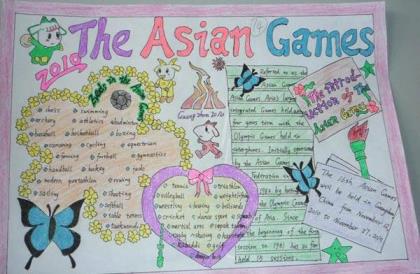 The Asian Games
2010
Sports in the Asian Games
chess swimming
archery athletics badminton
baseball basketball boxing
canoeing cycling equestrian
fencing football gymnastics
handball hockey judo
modern pentathlon rowing
sailing shooting
softball
table tennis
taekwondo
Guangzhou 2010
tennis triathlon
volleyball weightlifting
wrestling boxing
cricket dance sport
martial arts
golf
Referred to as the
Asian Games Asia's largest
integrated Games held every
for years term with the
Olympic Games held in
Initially sponsored
by the Asian Games
Federation
by
the Olympic Council
of Asia. Since
the beginning of the first
session to 1951 has so far
held 15 sessions.
The Introd-
uction of The
Asian Games
The 16th Asian Games
will be held in Guangzhou
China from November 12,
2010 to November 27, 2010